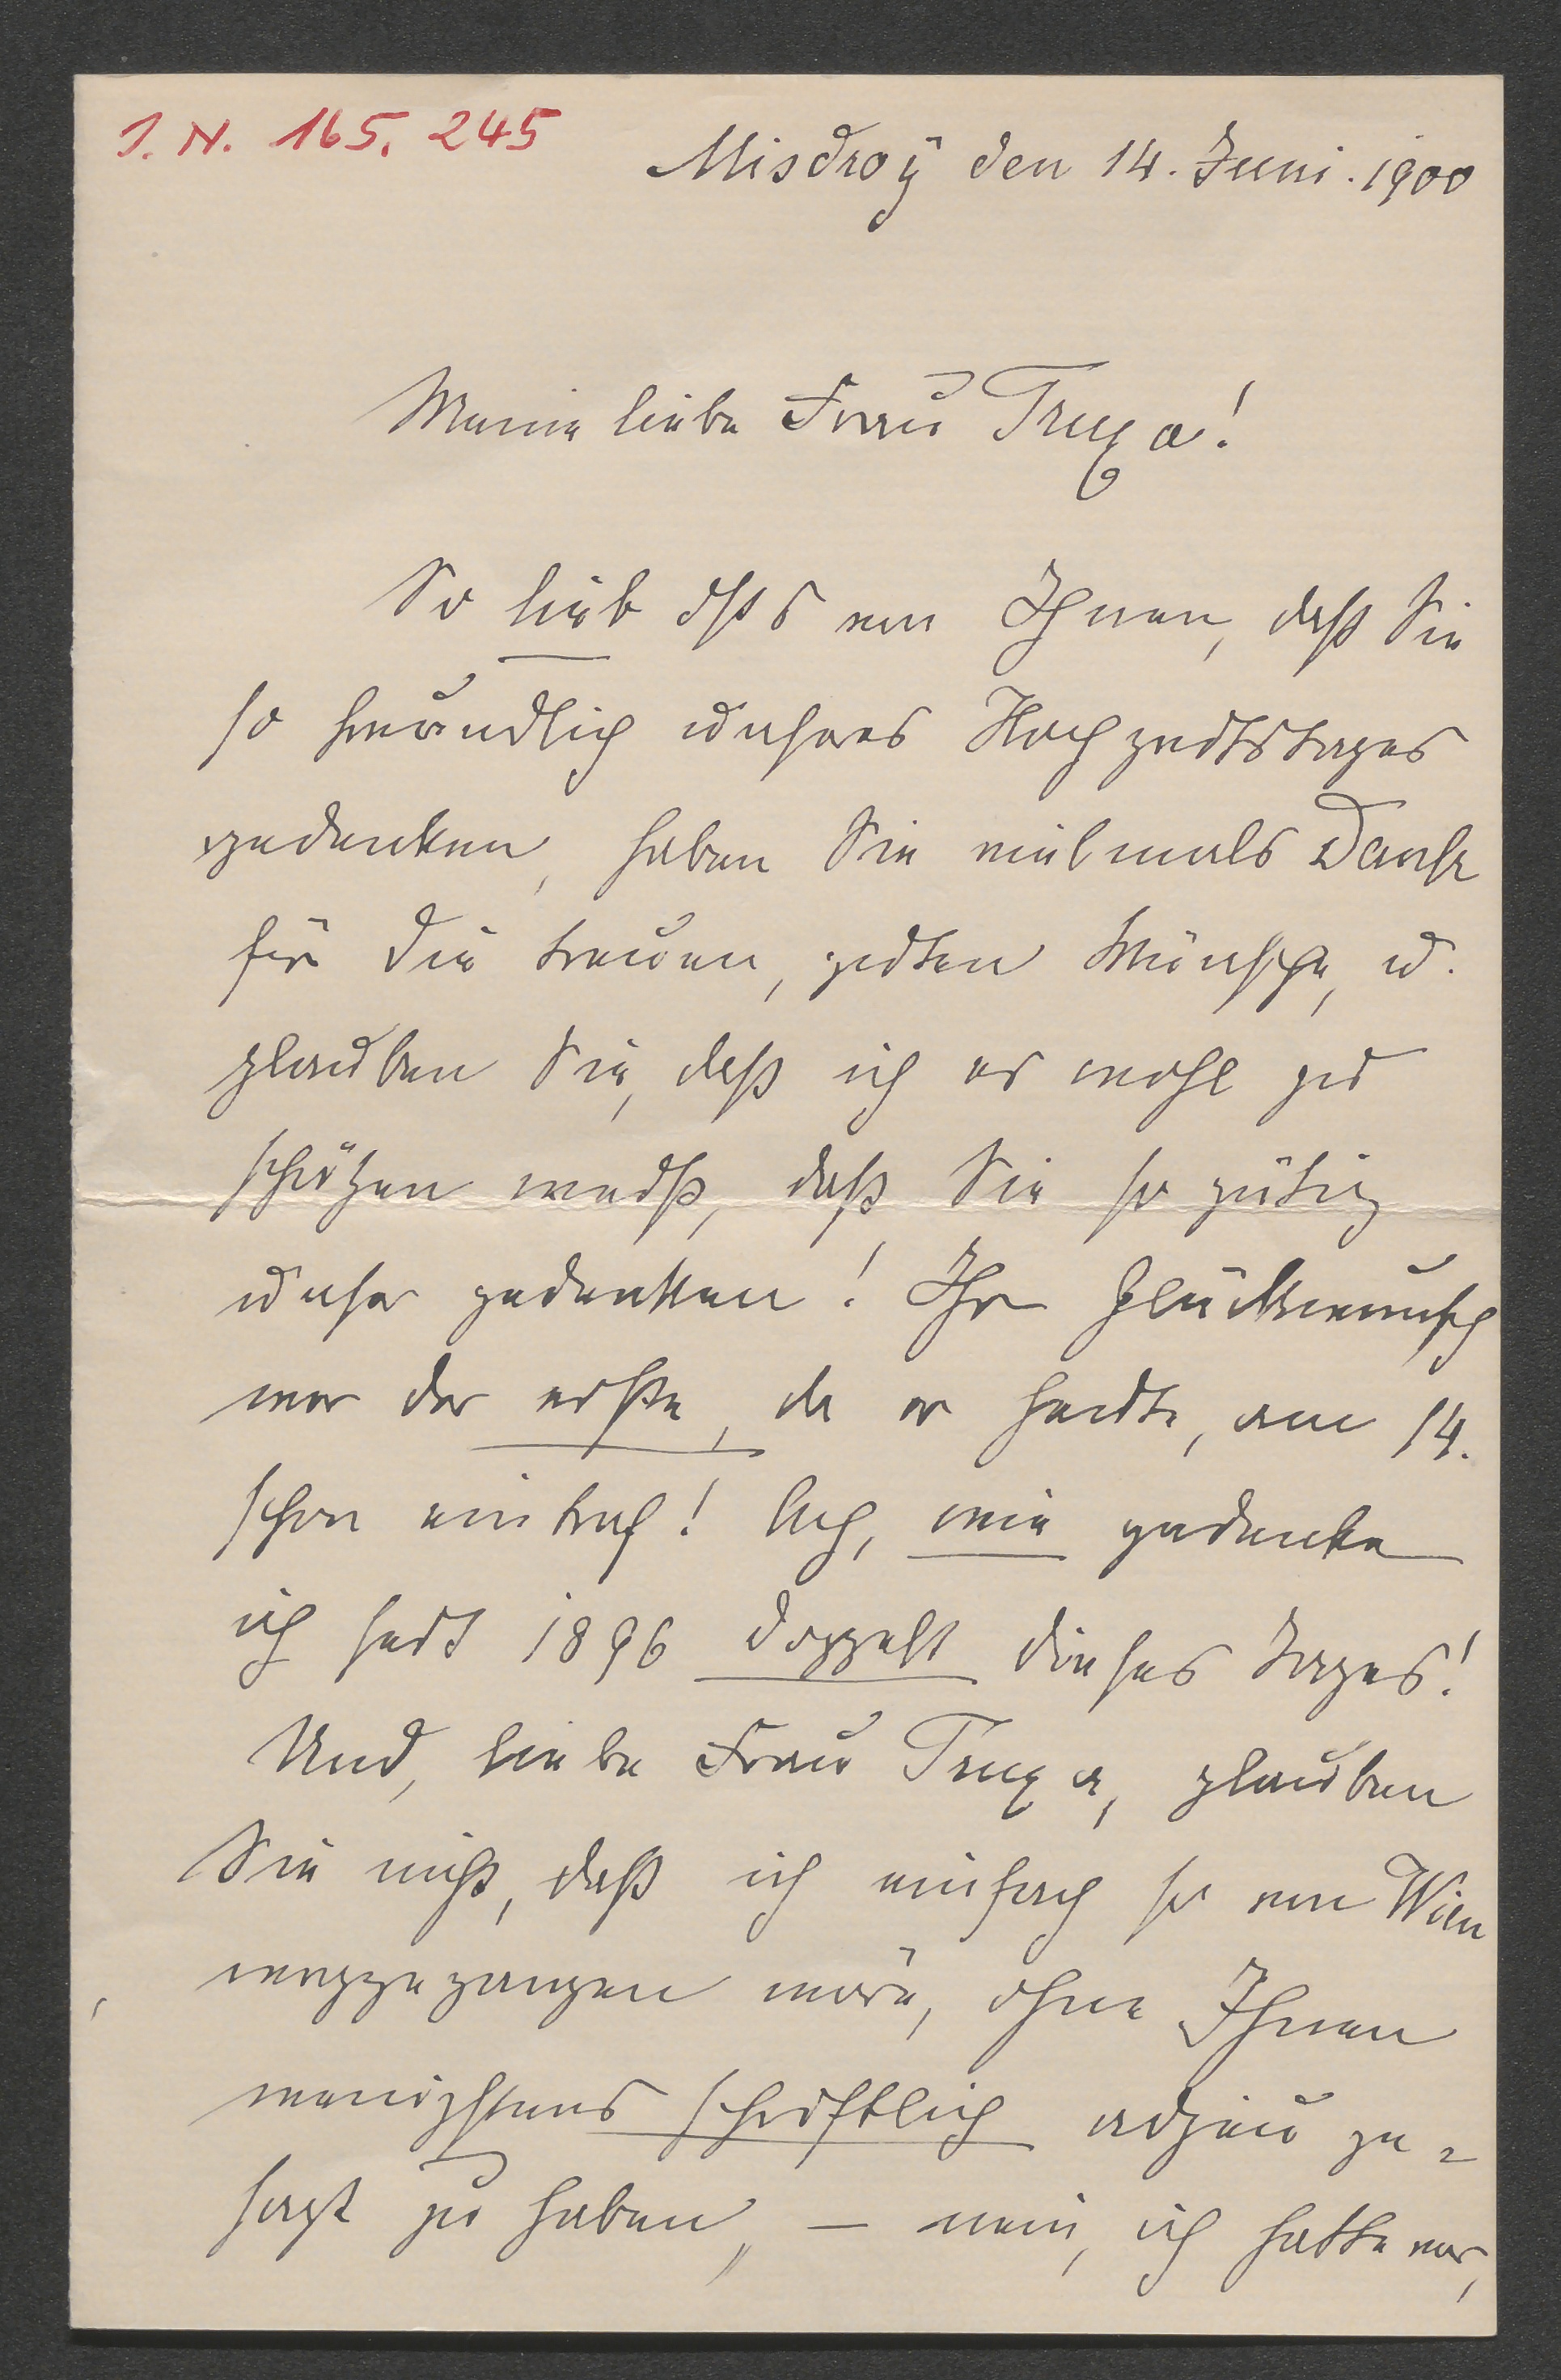 I. N. 165.245
Misdroÿ den 14. Juni. 1900
Meine liebe Frau Truxa!
So lieb ists von Ihnen, daß Sie
so freundlich unseres Hochzeitstages
gedenken, haben Sie vielmals Dank
für die treuen, guten Wünsche, u.
glauben Sie, daß ich es wohl zu
schätzen weiß, daß Sie so gütig
unser gedenken! Ihr Glückwunsch
war der erste, da er heute, am 14.
schon eintraf! Ach, wie gedenke
ich seit 1896 doppelt dieses Tages!
Und, liebe Frau Truxa, glauben
Sie nicht, daß ich einfach so von Wien
weggegangen wäre, ohne Ihnen
wenigstens schriftlich adjeu ge=
sagt zu haben, – nein, ich hatte vor,